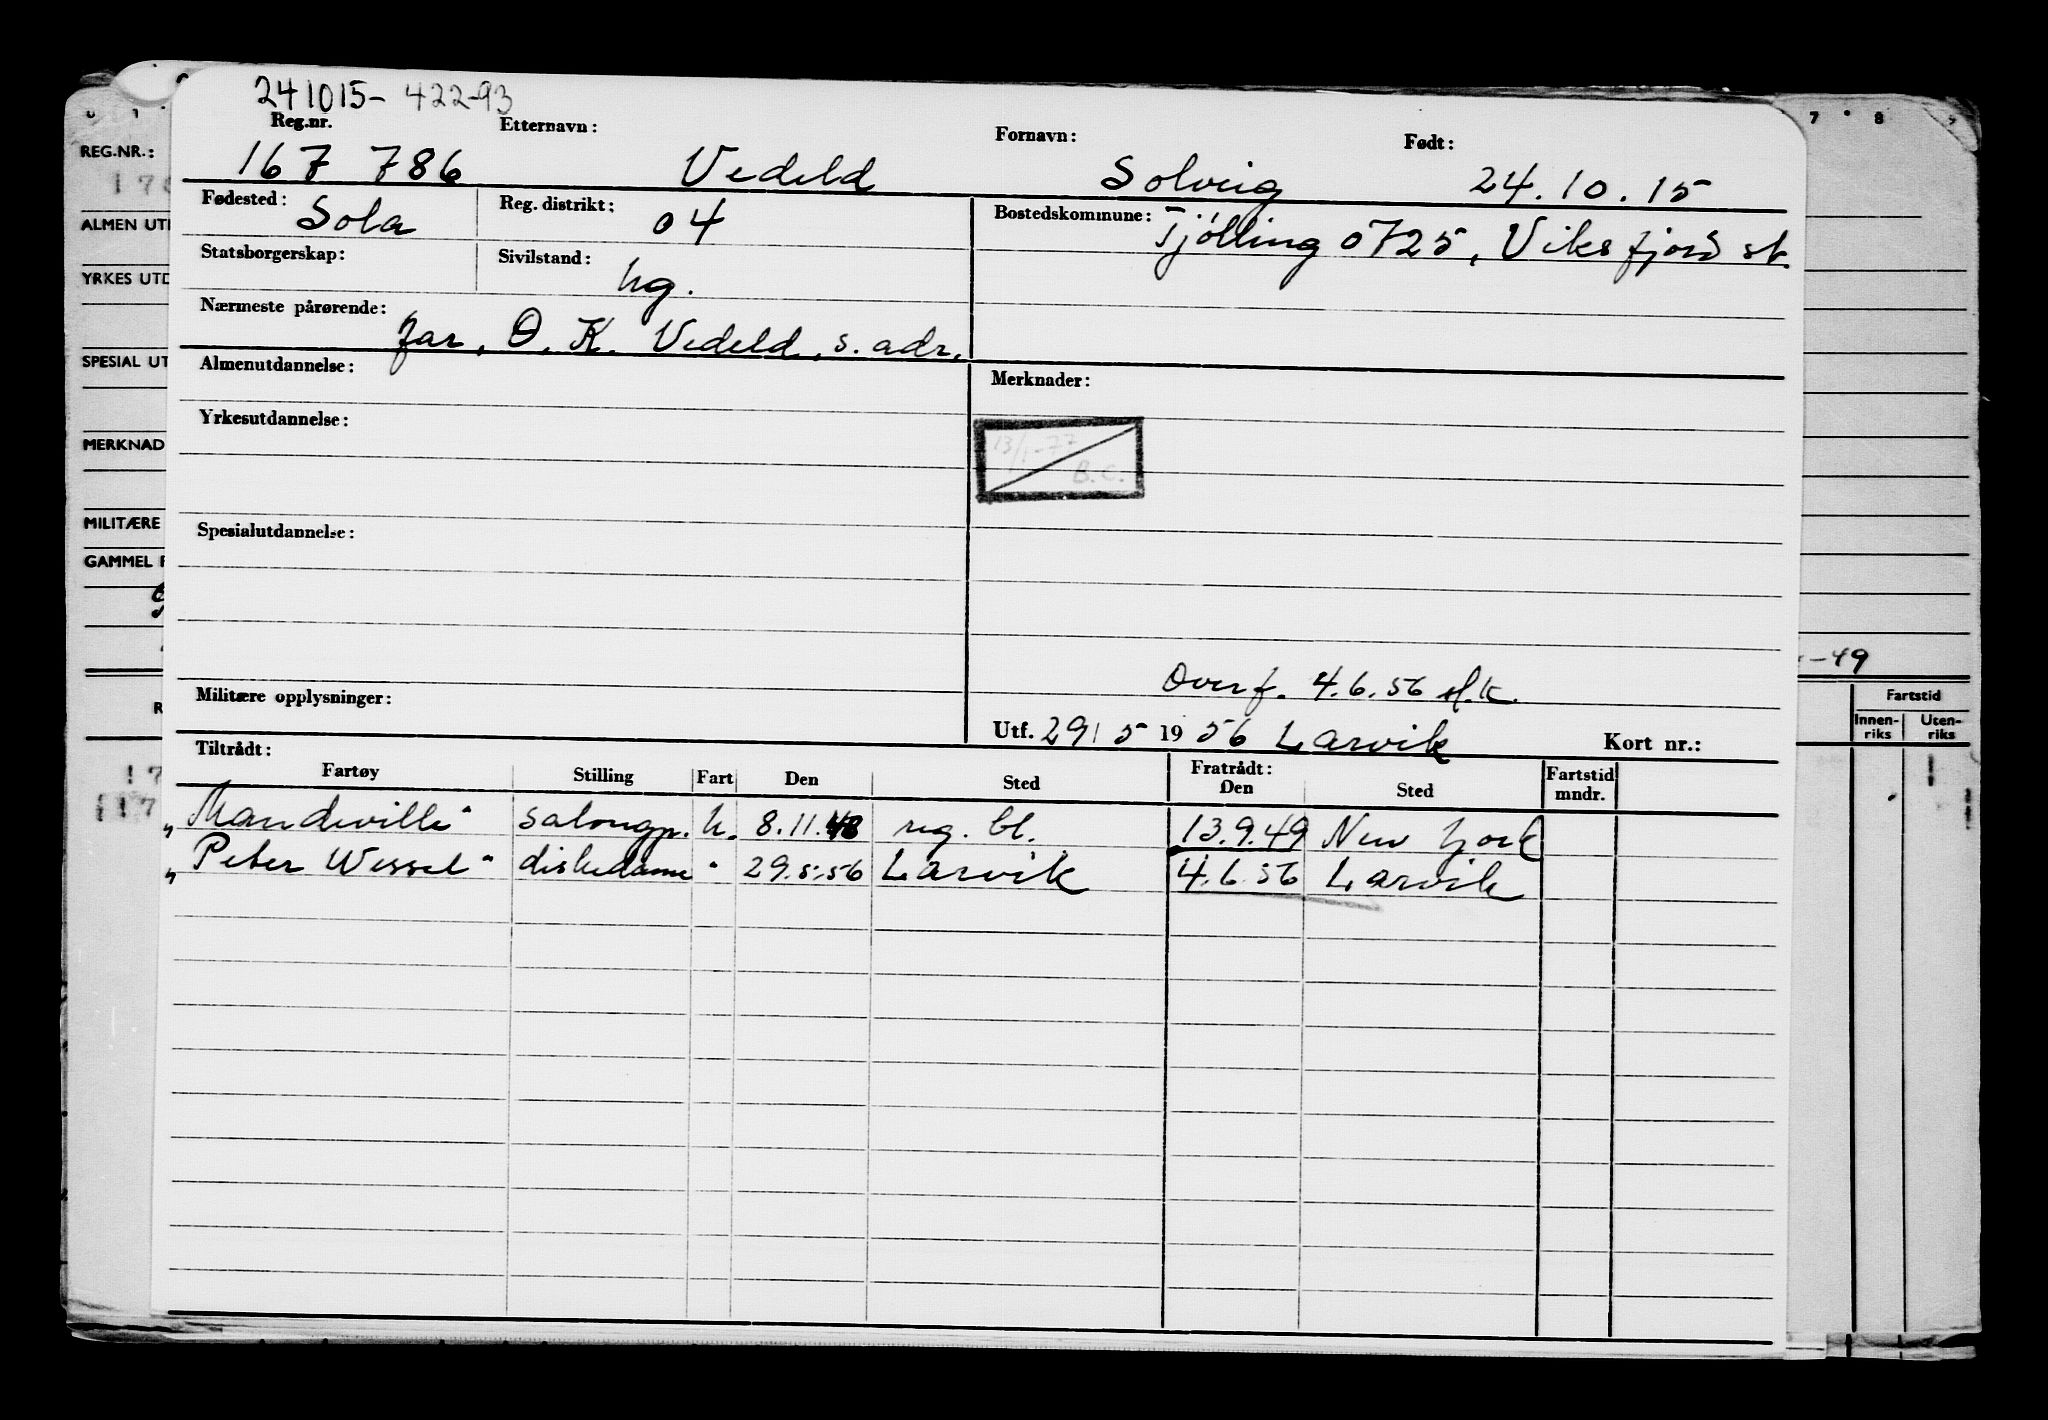 241015-42293
Reg.nr. Etternavn: Fornavn: Født:
167 786 Vedeld Solveig 24.10.15
Fødested: Sola Reg. distrikt: 04 Bostedskommune: Tjölling 0725, Viksfjord st.
Statsborgerskap: Sivilstand: ug.
Nærmeste pårørende: far, O. K. Vedeld, s. adr.
Almenutdannelse: Merknader:
Yrkesutdannelse:
13/1-77
B.C.
Spesialutdannelse:
Overf. 4.6.56
Militære opplysninger: Utf. 29/5 1956 Larvik Kort nr.:
Tiltrådt: Fratrådt:
Fartøy Stilling Fart Den Sted Den Sted Fartstid mndr.
"Mandeville" salongp. u. 8.11.48 reg. bl. 13.9.49 New York
"Peter Wessel" diskedame " 29.5.56 Larvik 4.6.56 Larvik
REG.NR.:
ALMEN UT
YRKES UTD
SPESIAL UT
MERKNAD
MILITÆRE
GAMMEL
7 8
-49
Fartstid
Innen-riks Uten-riks